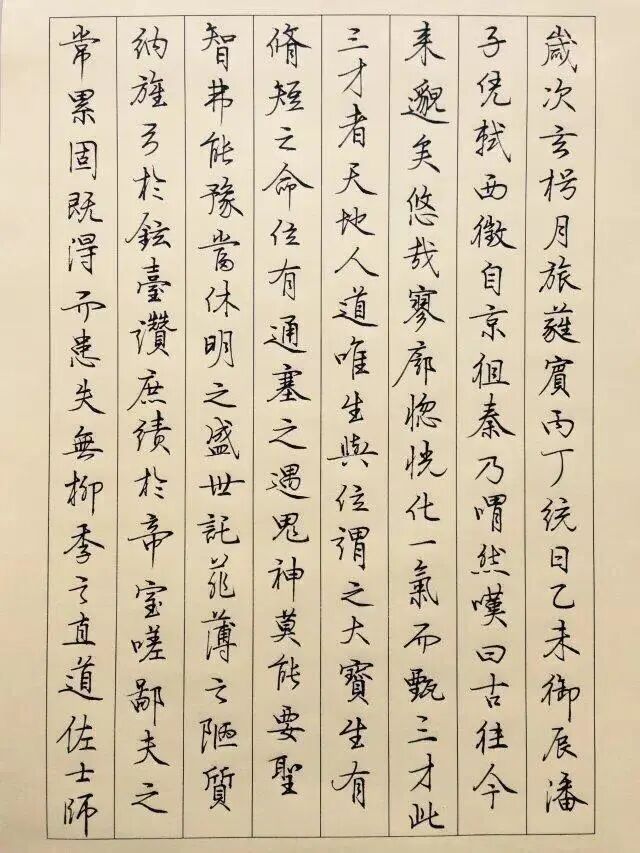 歲次玄枵月旅蕤賓丙丁統日乙未御辰潘
子凭軾西徵自京徂秦乃喟然嘆曰古往今
来邈矣悠哉寥廓惚恍化一氣而甄三才此
三才者天地人道唯生與位謂之大寶生有
脩短之命位有通塞之遇鬼神莫能要聖
智弗能豫當休明之盛世託菲薄之陋質
納旌弓於鉉臺讚庶績於帝室嗟鄙夫之
常累固既得而患失無柳季之直道佐士師